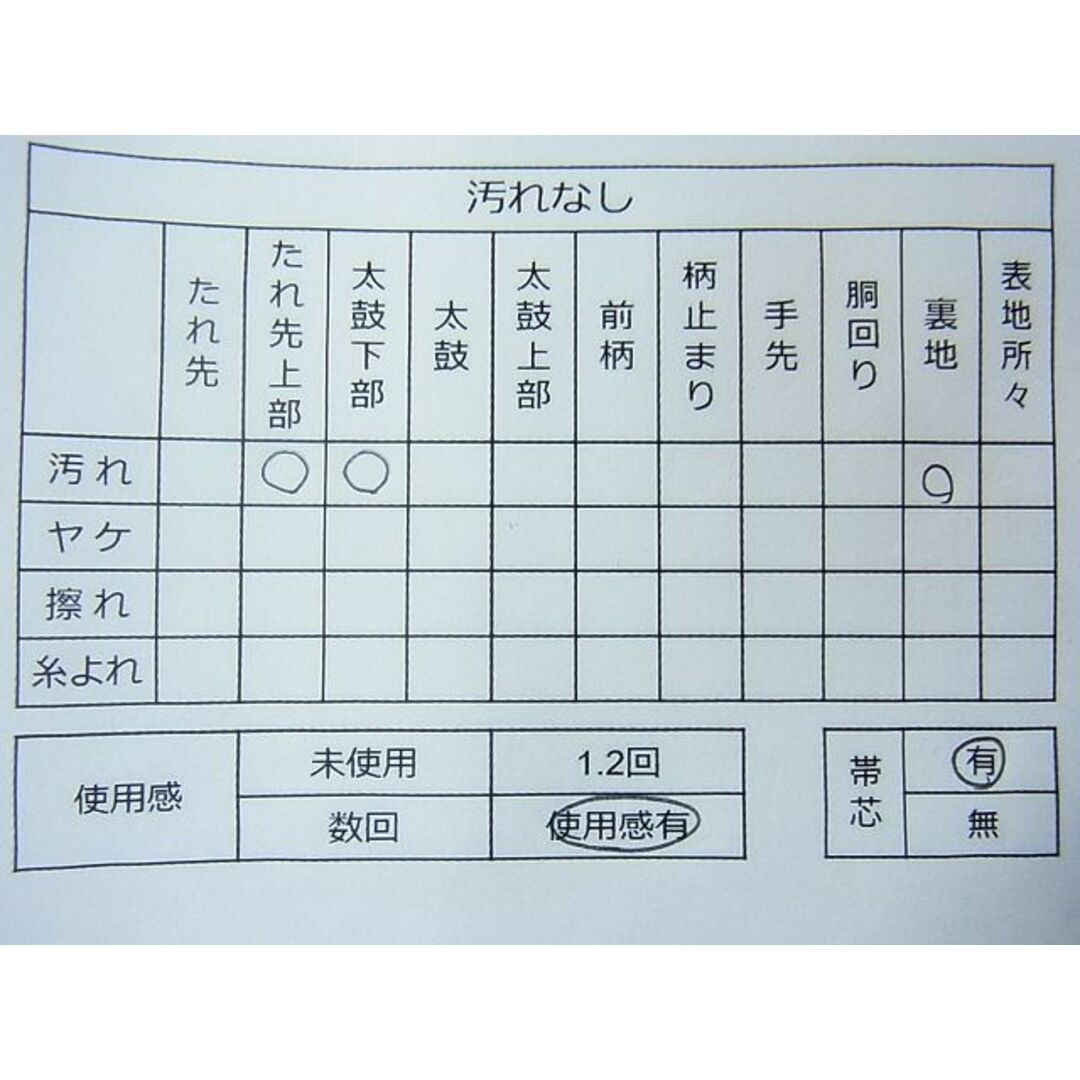 汚れなし
たれ先 たれ先上部 太鼓下部 太鼓 太鼓上部 前柄 柄止まり 手先 胴回り 裏地 表地所々
汚れ ○ ○ ○
ヤケ
擦れ
糸よれ
使用感 未使用 1.2回
数回 使用感有
帯芯 有
無